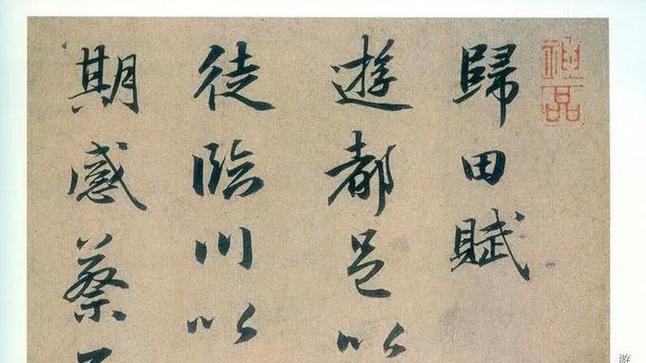 神品
歸田賦
遊都邑以
徒臨川以
期感蔡
游